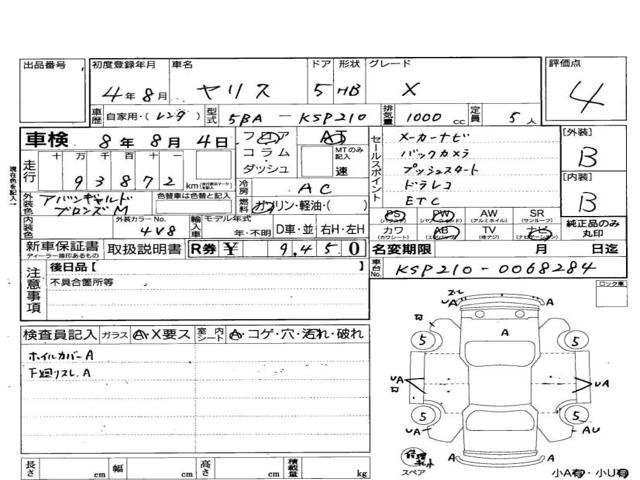 出品番号 初度登録年月 車名 ドア 形状 グレード 評価点
4年8月 ヤリス 5 HB X 4
車歴 自家用・(レンタ) 型式 5BA - KSP210 排気量 1000 cc 定員 5人
車検 8年8月4日 フロア コラム・ダッシュ AT MTのみ記入 速
走行 十万千百十一
93872 km
冷房 AC
外装色 アバンギャルドブロンズM 色替車は色替と記入 燃料 ガソリン・軽油・( )
内装色 外装カラーNo. 4V8 輸入車 モデル年式 年・不明 D車・並 右H・左H
新車保証書 ディーラー捺印あるもの 取扱説明書 R券 ¥ 9,450
セールスポイント
メーカーナビ
バックカメラ
プッシュスタート
ドラレコ
ETC
[外装] B
[内装] B
PS (パワステ) PW (パワーウィンド) AW (アルミホイル) SR (サンルーフ)
カワ (カワシート) AB (エアバック) TV (地デジ) ナビ (ナビゲーション) 純正品のみ丸印
名変期限 月 日迄
車台No. KSP210-0068284
注意事項 後日品 [ ]
不具合箇所等
ロック車
検査員記入 ガラス A・X要ス 室内シート A・コゲ・穴・汚れ・破れ
ホイルカバーA
下廻りスレ、A
A
5 5
A
UA A UA
5 5
UA A AU
修理キット
スペア
A
長さ cm 幅 cm 高さ cm 積載量 kg
小A有・小U有